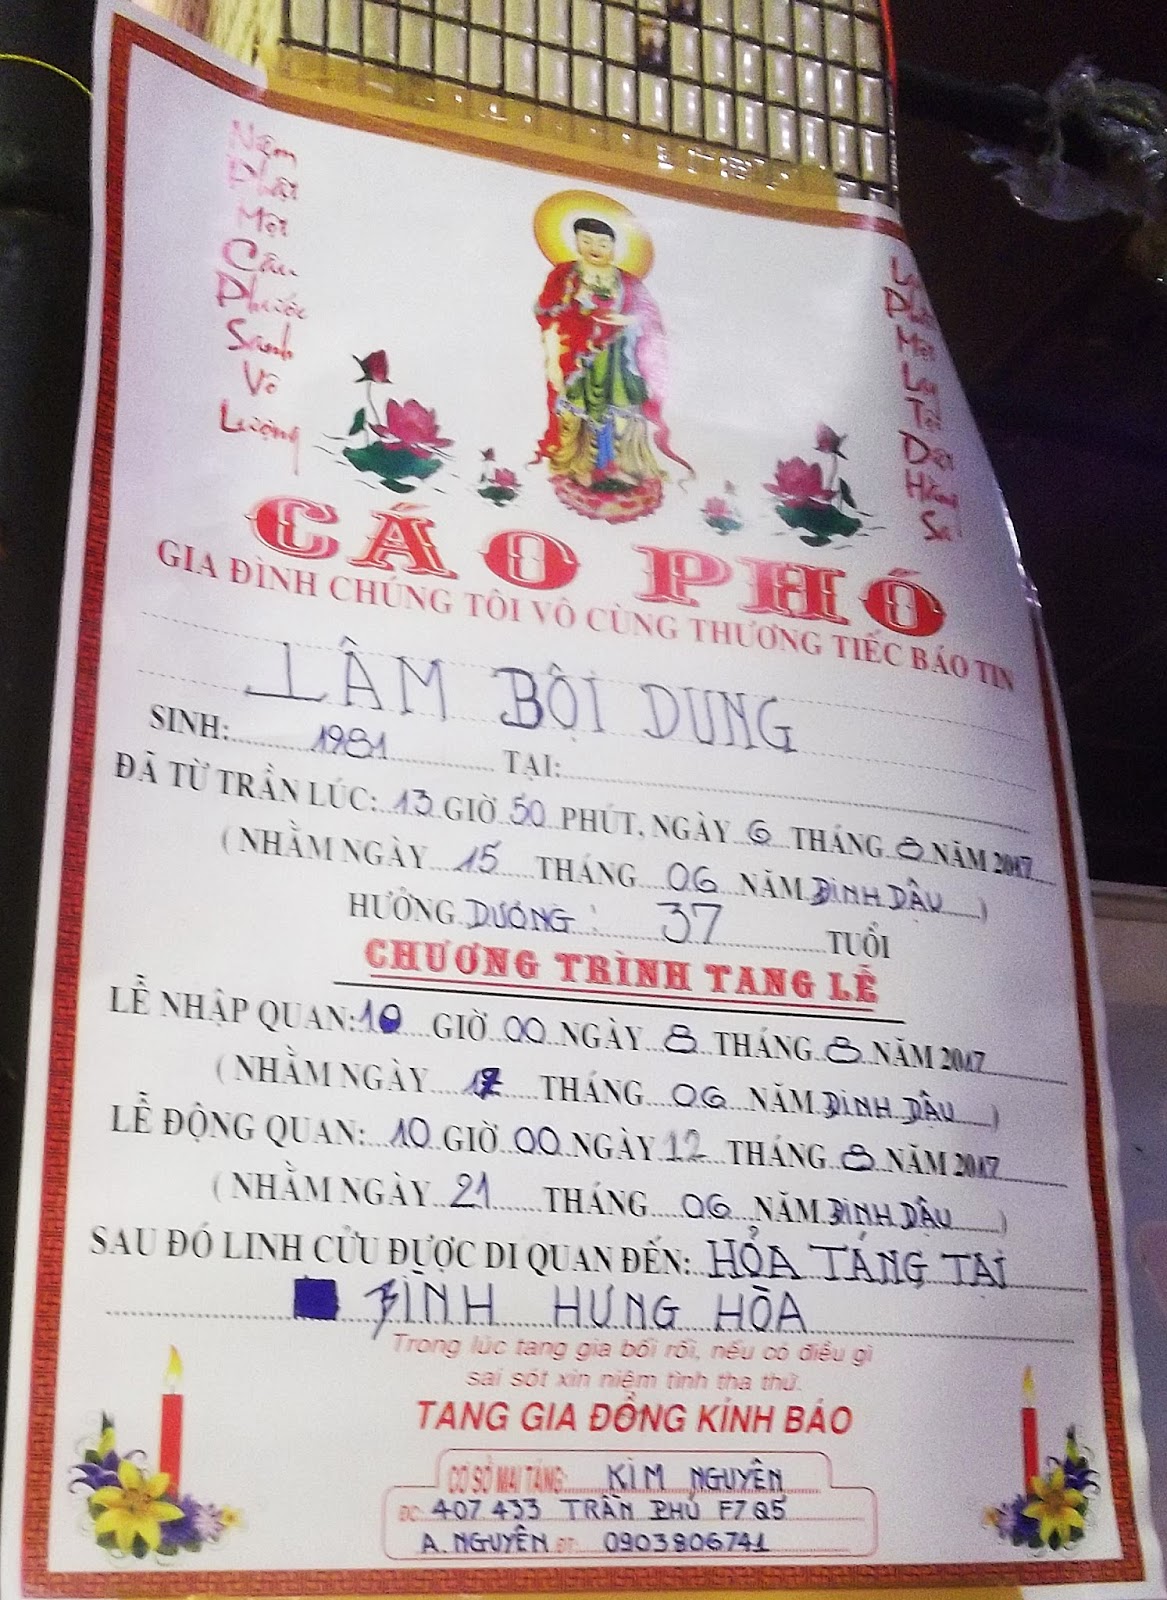 Niệm
Phật
Một
Câu
Phước
Sanh
Vô
Lượng
Lạy
Phật
Một
Lạy
Tội
Diệt
Hằng
Sa
CÁO PHÓ
GIA ĐÌNH CHÚNG TÔI VÔ CÙNG THƯƠNG TIẾC BÁO TIN
LÂM BỘI DUNG
SINH: 1981 TẠI:
ĐÃ TỪ TRẦN LÚC: 13 GIỜ 50 PHÚT, NGÀY 6 THÁNG 8 NĂM 2017
( NHẰM NGÀY 15 THÁNG 06 NĂM ĐINH DẬU )
HƯỞNG DƯƠNG : 37 TUỔI
CHƯƠNG TRÌNH TANG LỄ
LỄ NHẬP QUAN: 10 GIỜ 00 NGÀY 8 THÁNG 8 NĂM 2017
( NHẰM NGÀY 17 THÁNG 06 NĂM ĐINH DẬU )
LỄ ĐỘNG QUAN: 10 GIỜ 00 NGÀY 12 THÁNG 8 NĂM 2017
( NHẰM NGÀY 21 THÁNG 06 NĂM ĐINH DẬU )
SAU ĐÓ LINH CỬU ĐƯỢC DI QUAN ĐẾN: HỎA TÁNG TẠI
BÌNH HƯNG HÒA
Trong lúc tang gia bối rối, nếu có điều gì
sai sót xin niệm tình tha thứ.
TANG GIA ĐỒNG KÍNH BÁO
CƠ SỞ MAI TÁNG: KIM NGUYÊN
ĐC: 407 433 TRẦN PHÚ F7 Q5
A. NGUYÊN ĐT: 0903806741